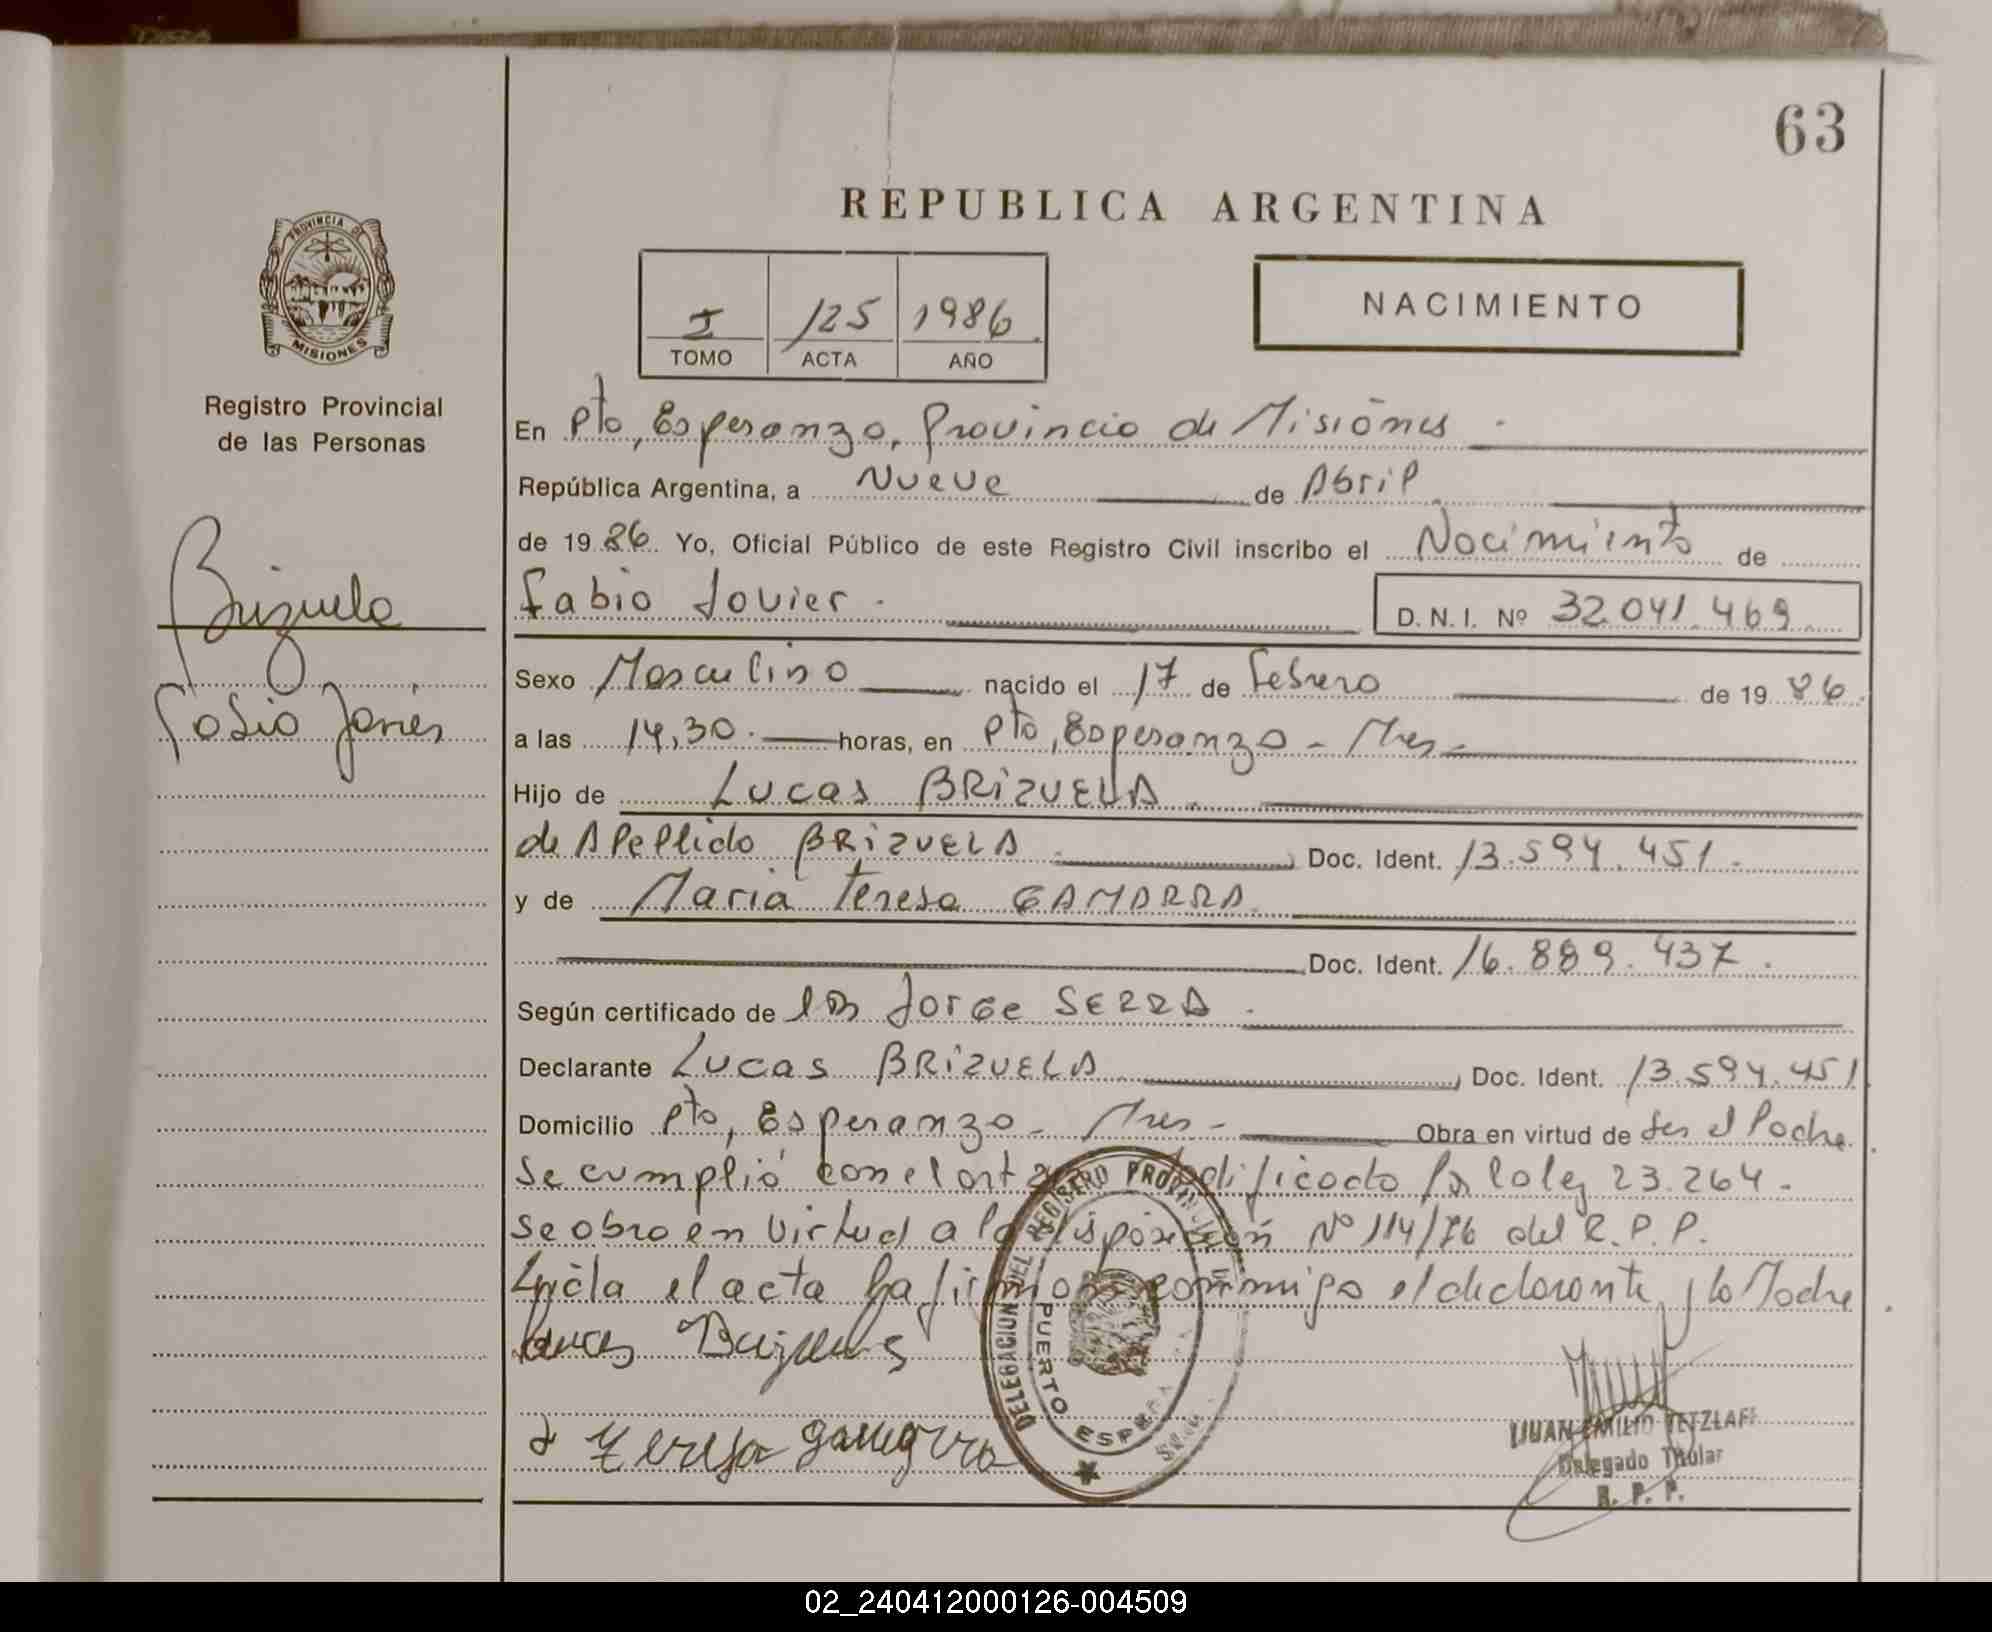 63
REPUBLICA ARGENTINA
PROVINCIA DE
MISIONES
I 125 1986
TOMO ACTA AÑO
NACIMIENTO
Registro Provincial
de las Personas
En Pto, Esperanza, Provincia de Misiones
República Argentina, a Nueve de Abril
de 1986 Yo, Oficial Público de este Registro Civil inscribo el Nacimiento de
Fabio Javier. D. N. I. Nº 32.041.469
Brizuela
Fabio Javier
Sexo Masculino nacido el 17 de Febrero de 1986
a las 14,30. horas, en Pto, Esperanza - Mnes -
Hijo de Lucas BRIZUELA
de Apellido BRIZUELA Doc. Ident. 13.594.451.
y de Maria Teresa GAMARRA
Doc. Ident. 16.889.437.
Según certificado de Jorge SERRA.
Declarante Lucas BRIZUELA, Doc. Ident. 13.594.451
Domicilio Pto, Esperanza - Mnes - Obra en virtud de ser el Padre.
Se cumplió con el art modificado por la ley 23.264.
Se obro en virtud a la disposición Nº 114/76 del R.P.P.
Leida el acta la firman conmigo el declarante y la Madre.
lucas Brizuela
Teresa gamarra
DELEGACION DEL REGISTRO PROVINCIAL DE
PUERTO ESPERANZA
JUAN EMILIO TETZLAFF
Delegado Titular
R. P. P.
02_240412000126-004509